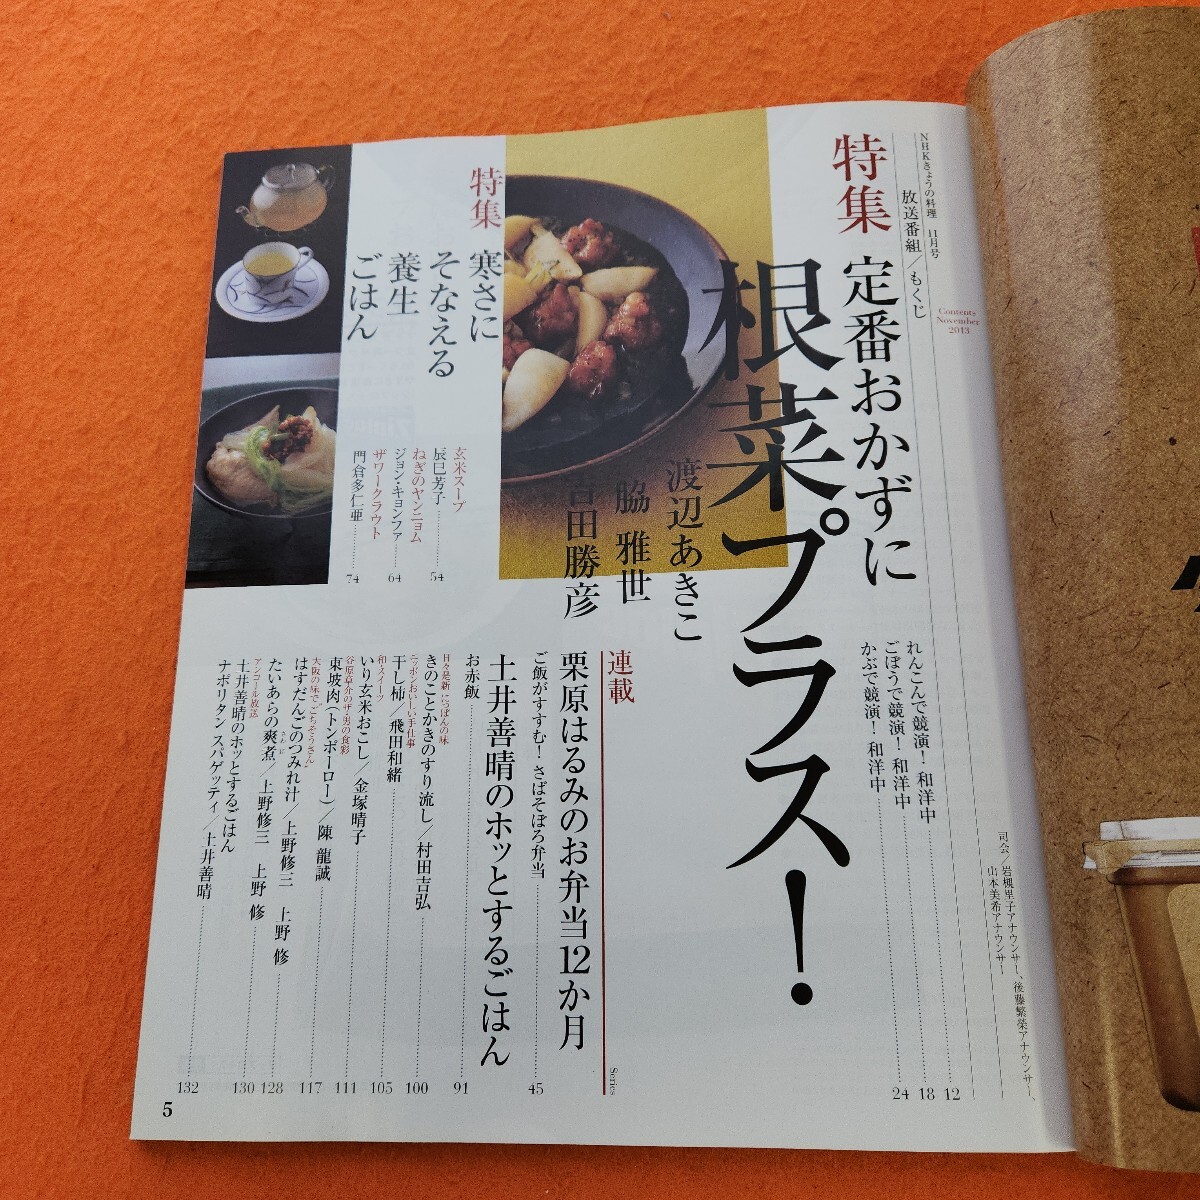 NHKきょうの料理 11月号
放送番組/もくじ
Contents
November
2013
特集
定番おかずに
根菜プラス!
渡辺あきこ
脇 雅世
吉田勝彦
れんこんで競演! 和洋中 12
ごぼうで競演! 和洋中 18
かぶで競演! 和洋中 24
司会/岩槻里子アナウンサー、後藤繁榮アナウンサー、
山本美希アナウンサー
特集
寒さに
そなえる
養生
ごはん
玄米スープ
辰巳芳子 54
ねぎのヤンニョム
ジョン・キョンファ 64
ザワークラウト
門倉多仁亜 74
連載
Series
栗原はるみのお弁当12か月
ご飯がすすむ! さばそぼろ弁当 45
土井善晴のホッとするごはん
お赤飯 91
日々是新 にっぽんの味
きのことかきのすり流し/村田吉弘 100
ニッポンおいしい手仕事
干し柿/飛田和緒 105
和・スイーツ
いり玄米おこし/金塚晴子 111
谷原章介のザ・男の食彩
東坡肉(トンポーロー)/陳 龍誠 117
大阪の味で“ごちそうさん”
はすだんごのつみれ汁/上野修三 上野 修 128
たいあらの爽煮/上野修三 上野 修 130
さんに
アンコール放送
土井善晴のホッとするごはん
ナポリタン スパゲッティ/土井善晴 132
5